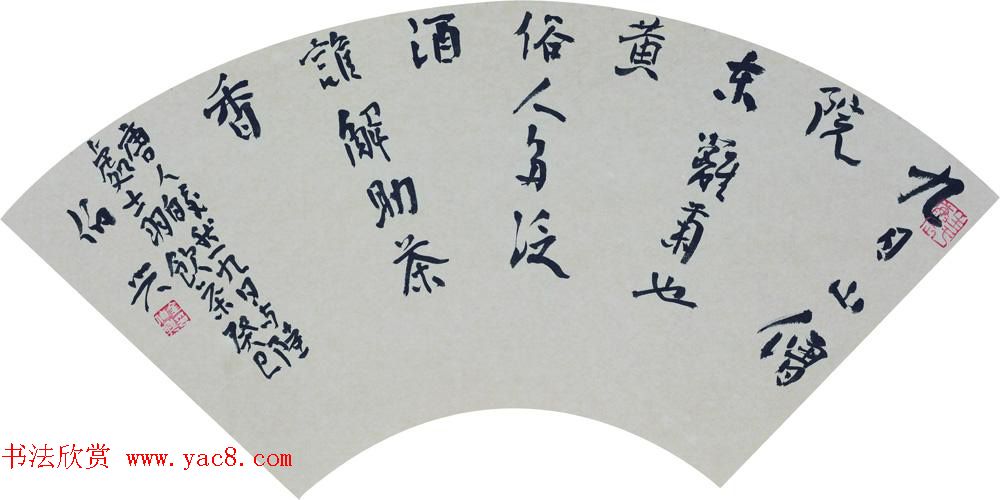 九日山僧
院
东籬菊也
黄
俗人多泛
酒
誰解助茶
香
唐人皎然九日与陸
處士羽飲茶癸巳
伯兴
书法欣赏 www.yac8.com